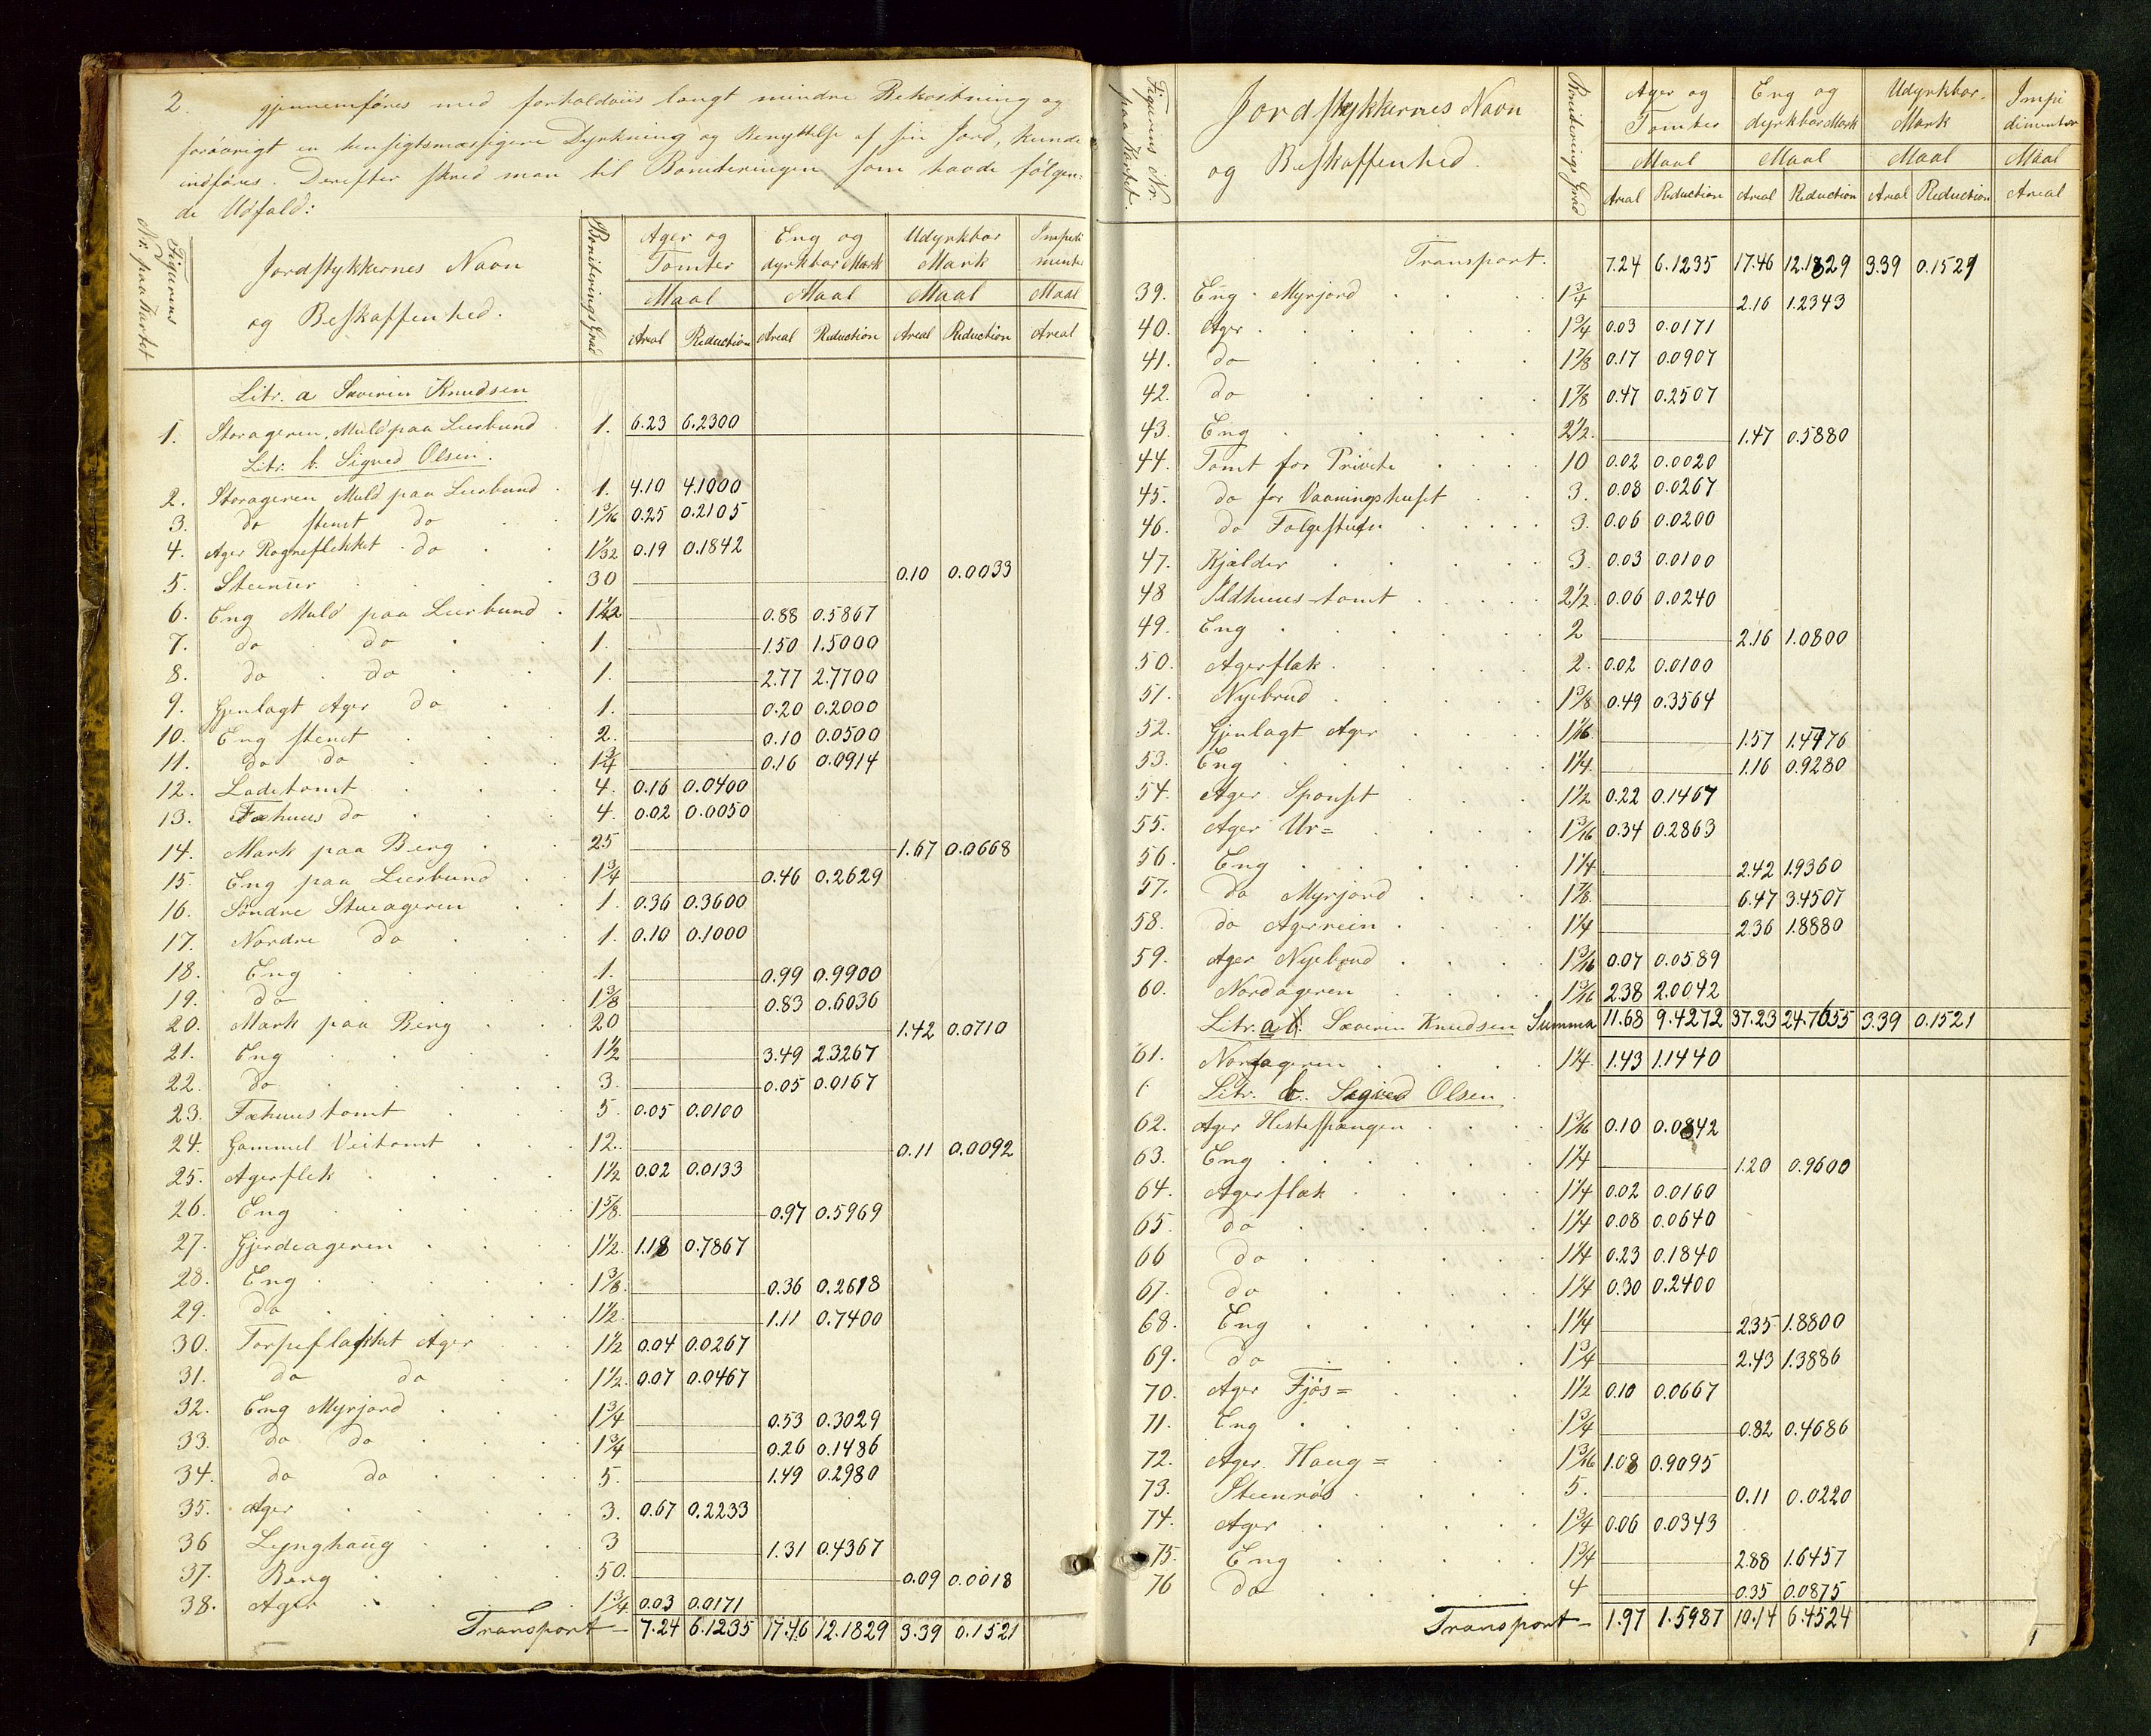 2. gjennemföres med forholdsviis langt mindre Bekostning og
forövrigt en hensigtsmæssigere Dyrkning og Benyttelse af sin Jord, kunde
indföres. Derefter skred man til Boniteringen som havde fölgen-
de Udfald:
Figurens Nr. paa Kartet | Jordstykkernes Navn og Beskaffenhed. | Boniterings Grad | Ager og Tomter | Eng og dyrkbar Mark | Udyrkbar Mark | Impedimenter
Maal | Maal | Maal | Maal
Areal | Reduction | Areal | Reduction | Areal | Reduction | Areal
Litr. a Severin Knudsen
1. Storageren, Muld paa Leerbund 1. 6.23 6.2300
Litr. b. Sigved Olsen.
2. Storageren Muld paa Leerbund 1. 4.10 4.1000
3. do stenet do 1 3/16 0.25 0.2105
4. Ager Rogneflekket do 1 1/32 0.19 0.1842
5. Steenuur 30 0.10 0.0033
6. Eng Muld paa Leerbund 1 1/2 0.88 0.5867
7. do do 1. 1.50 1.5000
8. do do 1. 2.77 2.7700
9. Gjenlagt Ager do 1. 0.20 0.2000
10. Eng stenet 2. 0.10 0.0500
11. do do 1 3/4 0.16 0.0914
12. Ladetomt 4. 0.16 0.0400
13. Fæhuus do 4. 0.02 0.0050
14. Mark paa Berg 25 1.67 0.0668
15. Eng paa Leerbund 1 3/4 0.46 0.2629
16. Söndre Stueageren 1. 0.36 0.3600
17. Nordre do 1. 0.10 0.1000
18. Eng 1. 0.99 0.9900
19. do 1 3/8 0.83 0.6036
20. Mark paa Berg 20 1.42 0.0710
21. Eng 1 1/2 3.49 2.3267
22. do 3. 0.05 0.0167
23. Fæhuustomt 5. 0.05 0.0100
24. Gammel Veitomt 12. 0.11 0.0092
25. Agerflek 1 1/2 0.02 0.0133
26. Eng 1 5/8 0.97 0.5969
27. Gjerdeageren 1 1/2 1.18 0.7867
28. Eng 1 3/8 0.36 0.2618
29. do 1 1/2 1.11 0.7400
30. Torpeflækket Ager 1 1/2 0.04 0.0267
31. do do 1 1/2 0.07 0.0467
32. Eng Myrjord 1 3/4 0.53 0.3029
33. do do 1 3/4 0.26 0.1486
34. do do 5. 1.49 0.2980
35. Ager 3. 0.67 0.2233
36 Lynghaug 3 1.31 0.4367
37. Berg 50. 0.09 0.0018
38. Ager 1 3/4 0.03 0.0171
Transport 7.24 6.1235 17.46 12.1829 3.39 0.1521
Figurens Nr. paa Kartet. | Jordstykkernes Navn og Beskaffenhed. | Boniterings Grad | Ager og Tomter | Eng og dyrkbar Mark | Udyrkbar Mark | Impedimenter
Maal | Maal | Maal | Maal
Areal | Reduction | Areal | Reduction | Areal | Reduction | Areal
Transport. 7.24 6.1235 17.46 12.1829 3.39 0.1521
39. Eng Myrjord 1 3/4 2.16 1.2343
40. Ager 1 3/4 0.03 0.0171
41. do 1 7/8 0.17 0.0907
42. do 1 7/8 0.47 0.2507
43. Eng 2 1/2. 1.47 0.5880
44. Tomt for Privete 10 0.02 0.0020
45. do for Vaaningshuset 3. 0.08 0.0267
46. do Folgestuen 3. 0.06 0.0200
47. Kjælder 3. 0.03 0.0100
48 Ildhuustomt 2 1/2 0.06 0.0240
49. Eng 2 2.16 1.0800
50. Agerflæk 2. 0.02 0.0100
51. Nyebrud 1 3/8 0.49 0.3564
52. Gjenlagt Ager 1 1/16. 1.57 1.4776
53. Eng 1 1/4. 1.16 0.9280
54. Ager Sponset 1 1/2 0.22 0.1467
55. Ager Ur= 1 3/16 0.34 0.2863
56. Eng 1 1/4 2.42 1.9360
57. do Myrjord 1 7/8. 6.47 3.4507
58. do Agerrein 1 1/4 2.36 1.8880
59. Ager Nyebrud 1 3/16 0.07 0.0589
60. Nordageren 1 3/16 2.38 2.0042
Litr. a Severin Knudsen Summa 11.68 9.4272 37.23 24.7655 3.39 0.1521
61. Nordageren 1 1/4. 1.43 1.1440
Litr. b. Sigved Olsen.
62. Ager Hestespongen 1 3/16 0.10 0.0842
63. Eng 1 1/4 1.20 0.9600
64. Agerflæk 1 1/4 0.02 0.0160
65. do 1 1/4 0.08 0.0640
66 do 1 1/4 0.23 0.1840
67. do 1 1/4 0.30 0.2400
68. Eng 1 1/4 2.35 1.8800
69. do 1 3/4 2.43 1.3886
70. Ager Fjös= 1 1/2 0.10 0.0667
71. Eng 1 3/4 0.82 0.4686
72. Ager Haug= 1 3/16 1.08 0.9095
73. Steenrös 5. 0.11 0.0220
74. Ager 1 3/4 0.06 0.0343
75. Eng 1 3/4 2.88 1.6457
76 do 4 0.35 0.0875
Transport 1.97 1.5987 10.14 6.4524